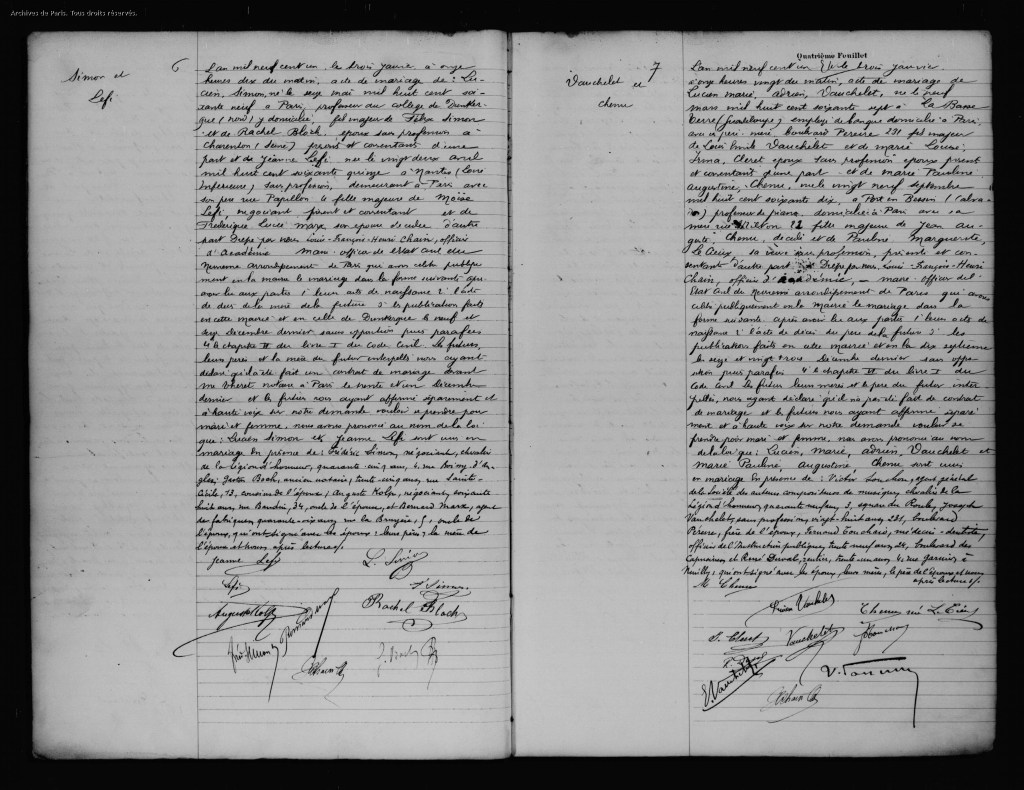 Archives de Paris. Tous droits réservés.
Simon et
Lefi
6
L'an mil neuf cent un le trois janvier à onze
heures dix du matin, acte de mariage de: Lu-
cien, Simon, né le seize mai mil huit cent soi-
xante neuf à Paris, professeur au collège de Dunker-
que (nord) y domicilié, fils majeur de Félix Simon
et de Rachel Bloch, époux sans profession à
Charenton (Seine) présents et consentants d'une
part et de Jeanne Lefi née le vingt deux avril
mil huit cent soixante quinze à Nantes (Loire
Inférieure), sans profession, demeurant à Paris avec
son père rue Papillon fille majeure de Moïse
Lefi, négociant présent et consentant et de
Frédérique Lucie Marx, son épouse décédée d'autre
part Dressé par nous Louis-François-Henri Chain, officier
d'Académie Maire officier de l'état civil du
Neuvième arrondissement de Paris qui avons célébré publique
ment en la mairie le mariage dans la forme suivante après
avoir lu aux parties 1° leurs actes de naissance 2° l'acte
de décès de la mère de la future 3° les publications faites
en cette mairie et en celle de Dunkerque le neuf et
seize décembre dernier sans opposition puis parafées
4° le chapitre VI du livre I du Code Civil. Les futurs,
leurs pères et la mère du futur interpellés nous ayant
déclaré qu'il a été fait un contrat de mariage devant
Me notaire à Paris le trente et un décembre
dernier et les futurs nous ayant affirmé séparément et
à haute voix sur notre demande vouloir se prendre pour
mari et femme, nous avons prononcé au nom de la loi
que: Lucien Simon et Jeanne Lefi sont unis en
mariage En présence de: Frédéric Simon, négociant, chevalier
de la légion d'honneur, quarante cinq ans, 4, rue Boissy d'An-
glas; Bloch, ancien notaire, trente cinq ans, rue Sainte-
Cécile, 13, cousins de l'époux; Auguste Kolp, négociant, soixante
huit ans, rue Baudin, 34, oncle de l'épouse, et Bernard Marx, agent
de fabriques, quarante-six ans, rue la Bruyère, oncle de
l'épouse, qui ont signé avec les époux, leurs pères, la mère de
l'époux et nous après lecture./.
Jeanne Lefi
L. Simon
Lefi
F. Simon
Auguste Kolp
Rachel Bloch
Vauchelet et
Chenu
7
Quatrième Feuillet
L'an mil neuf cent un le trois janvier
à onze heures vingt du matin, acte de mariage de
Lucien, marie, adrien, Vauchelet, né le neuf
mars mil huit cent soixante sept à La Basse
Terre (Guadeloupe) employé de banque domicilié à Paris
avec ses père mère boulevard Pereire 231 fils majeur
de Louis Emile Vauchelet et de marie Louise,
Irma, Cleret époux sans profession présents
et consentants d'une part et de marie Pauline
Augustine, Chenu, née le vingt neuf septembre
mil huit cent soixante dix, à Port en Bessin (Calva-
dos) professeur de piano domiciliée à Paris avec sa
mère rue Milton 21 fille majeure de Jean au-
guste Chenu décédé et de Pauline Marguerite,
sa veuve sans profession, présente et con-
sentante d'autre part Dressé par nous, Louis-François-Henri
Chain, officier d'académie, maire officier de l'
Etat civil du neuvième arrondissement de Paris qui avons
célébré publiquement en la Mairie le mariage dans la
forme suivante après avoir lu aux parties 1° leurs actes de
naissance 2° l'acte de décès du père de la future 3° les
publications faites en cette mairie et en la dix septième
le seize et vingt trois Décembre dernier sans oppo
sition puis parafées 4° le chapitre VI du livre I du
Code civil les futurs leurs mères et le père du futur inter
pellés, nous ayant déclaré qu'il n'a pas été fait de contrat
de mariage et les futurs nous ayant affirmé séparé
ment et à haute voix sur notre demande vouloir se
prendre pour mari et femme, nous avons prononcé au nom
de la loi que: Lucien, Marie, adrien, Vauchelet et
Marie Pauline, Augustine, Chenu sont unis
en mariage En présence de: Victor Souchon, agent général
de la Société des auteurs compositeurs de musique, chevalier de la
Légion d'honneur, quarante neuf ans, 3, square du Roule; Joseph
Vauchelet, sans profession, vingt-huit ans, 231, boulevard
Pereire, frère de l'époux; Fernand Touchard, médecin-dentiste,
officier de l'Instruction publique, trente neuf ans, 24, boulevard des
Capucines et René Duval, rentier, trente un ans, 4, rue Garnier à
Neuilly; qui ont signé avec les époux, leurs mères, le père de l'époux et nous
après lecture./.
M. Chenu
Lucien Vauchelet
I. Cleret
Vauchelet
E. Vauchelet